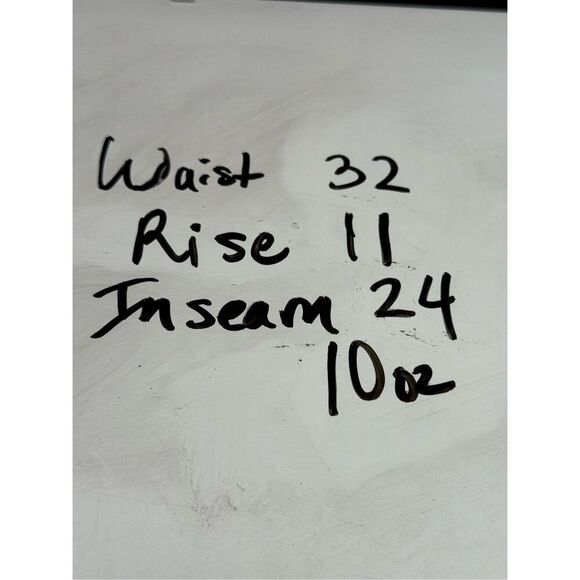 Waist 32
Rise 11
Inseam 24
10oz